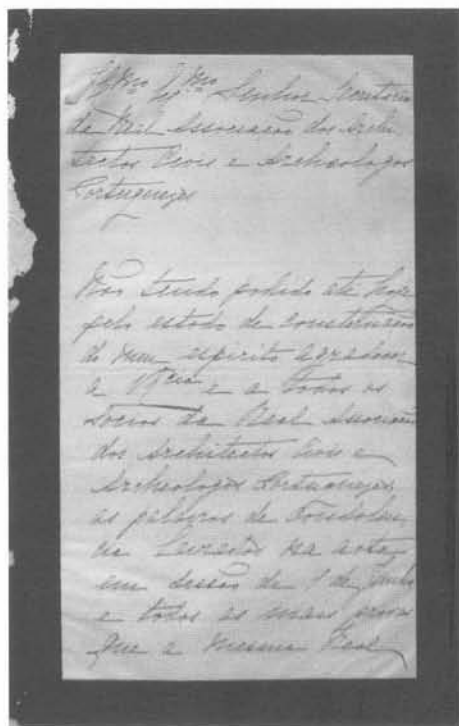 Illmo Exmo Senhor Secretario
da Real Associação dos Archi
tectos Civis e Archeologos
Portuguezes

Não tendo podido até hoje
pelo estado de consternação
do meu espirito agradecer
a V Excia e a todos os
socios da Real Associação
dos Architectos Civis e
Archeologos Portuguezes
as palavras de Condolen
cia lavradas na acta
em sessão de 1 de Junho
e todas as mais provas
que a mesma Real